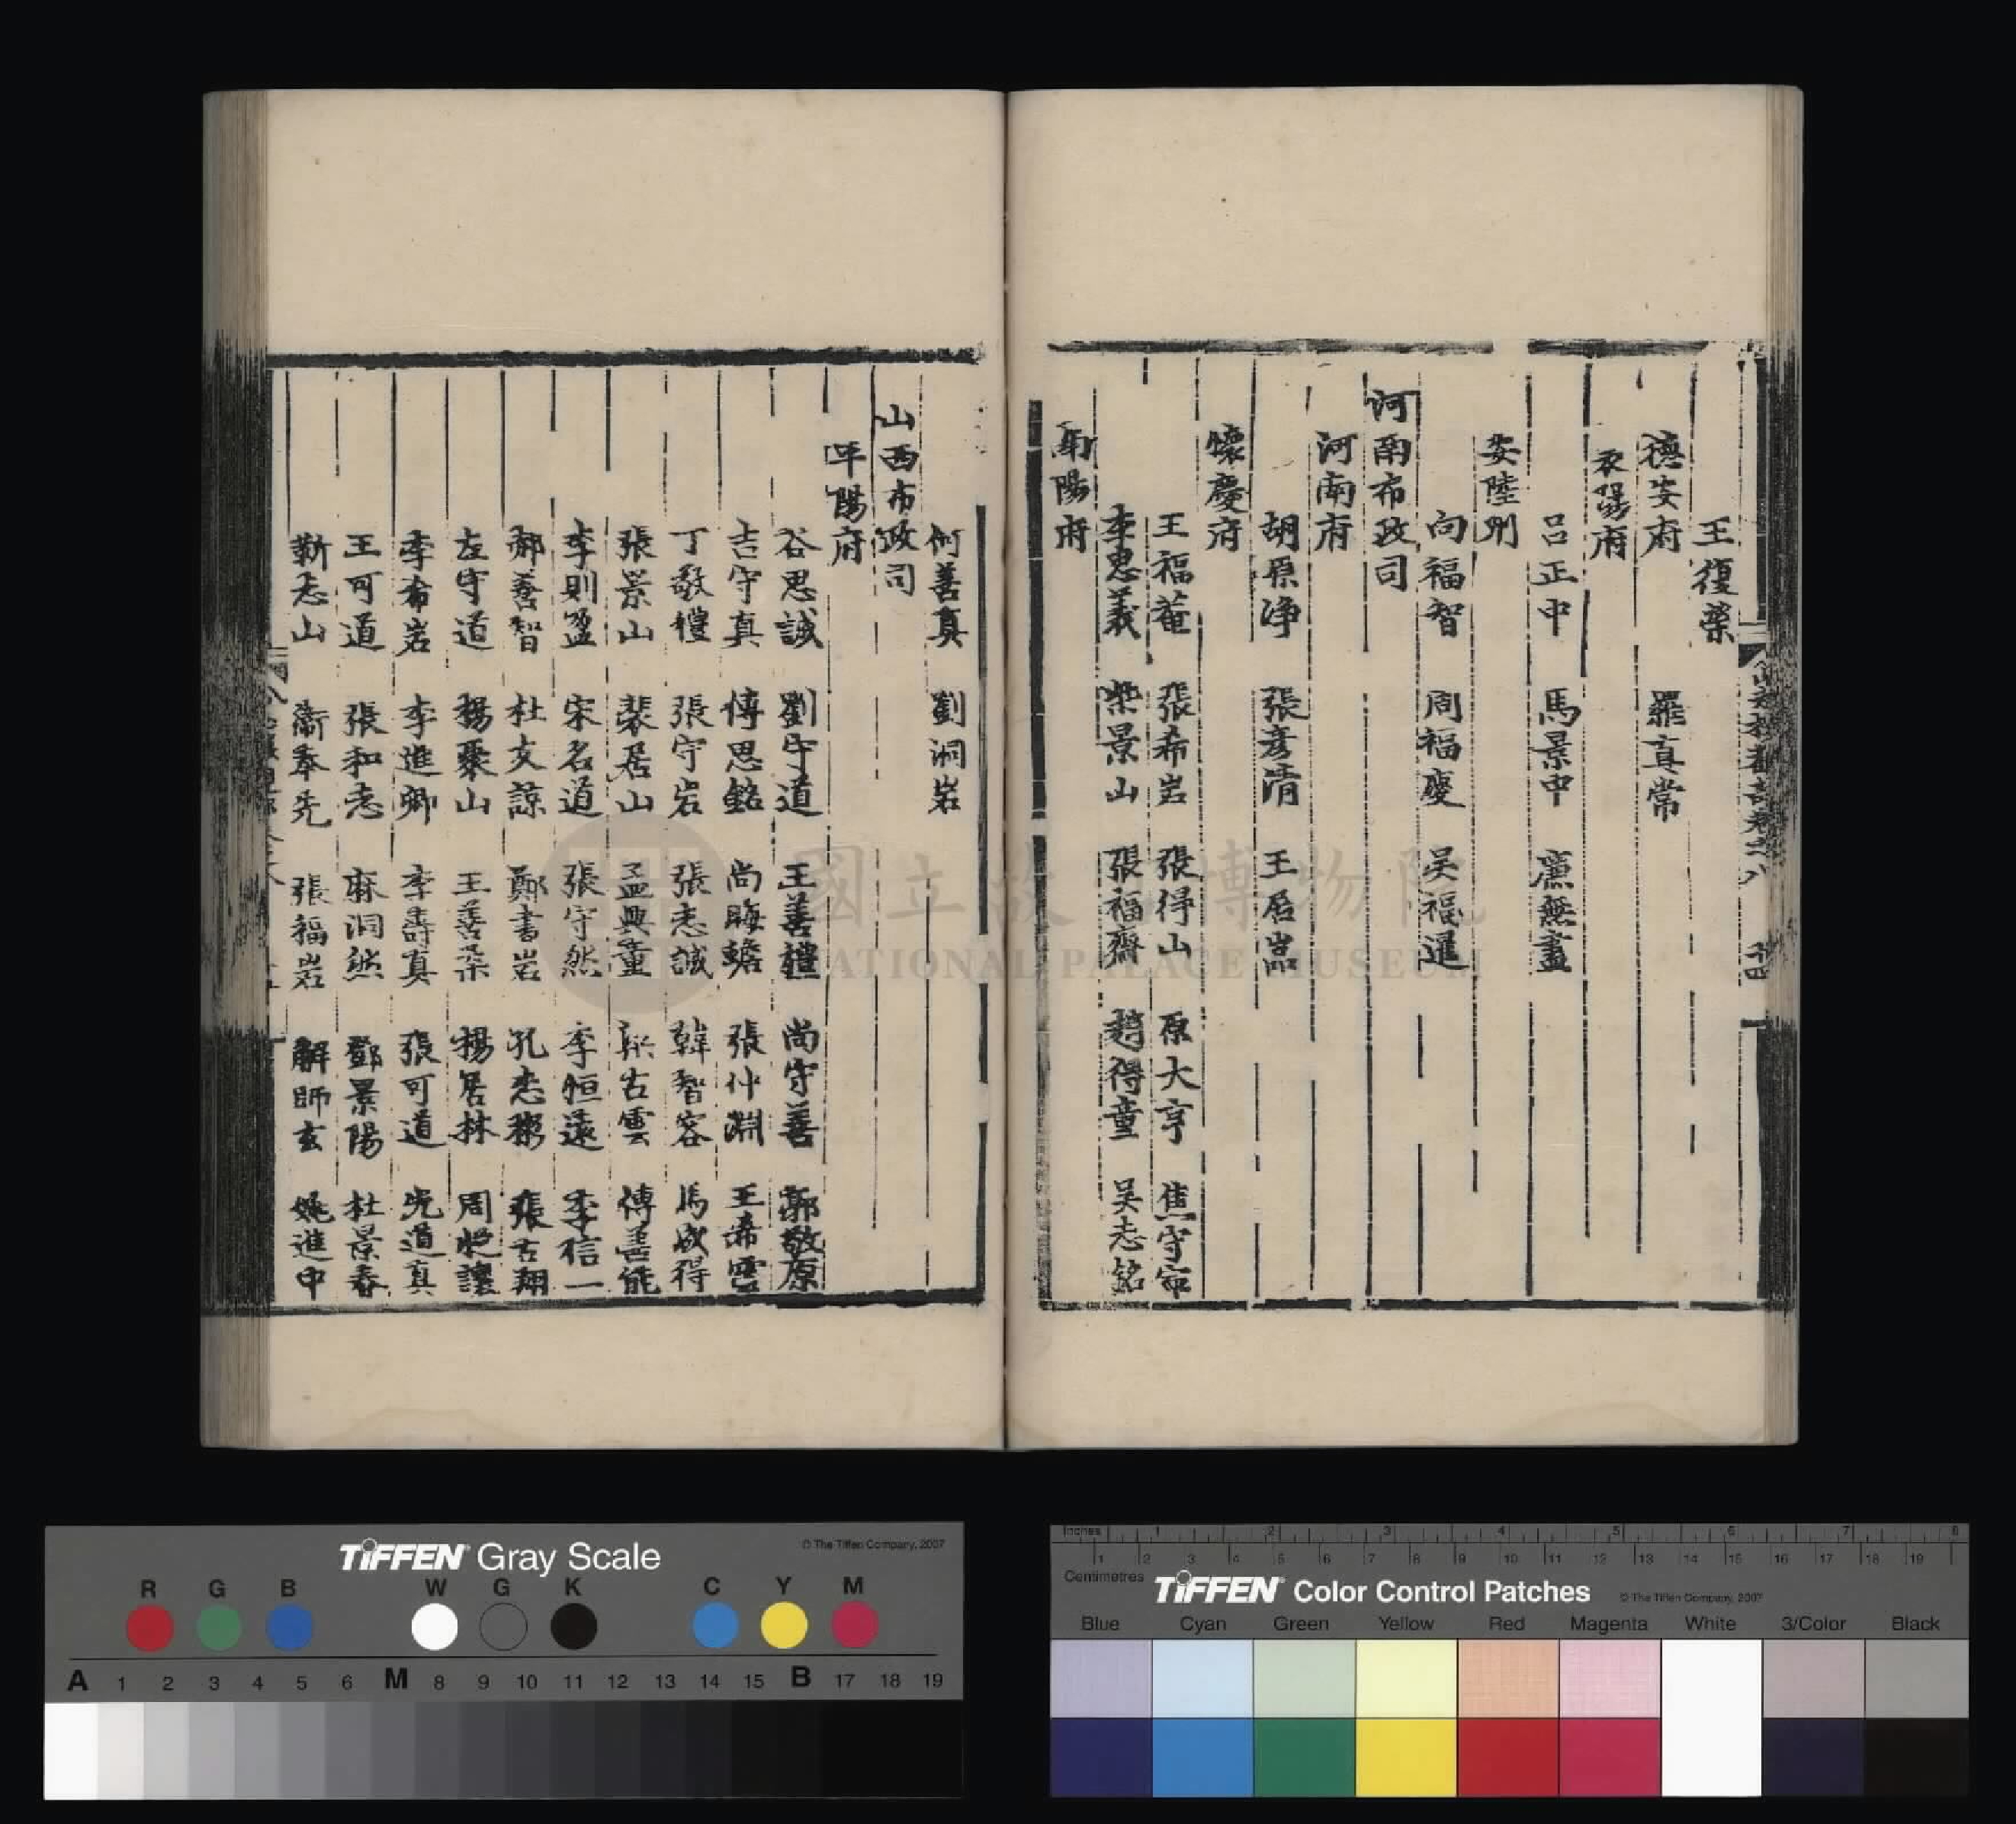 王復榮
德安府
羅真常
襄陽府
呂正中 馬景中 廉無盡
安陸州
向福智 周福慶 吳福暹
河南布政司
河南府
胡原淨 張彥清 王居嵓
懷慶府
王福菴 張希岩 張得山 原大亨 焦守宗
李思義 柴景山 張福齋 趙得童 吳志銘
南陽府
何善真 劉洞岩
山西布政司
平陽府
谷思誠 劉守道 王善禮 尚守善 郭敬原
吉守真 傅思銘 尚晦蟾 張仲淵 王希雲
丁敬禮 張守岩 張志誠 韓智容 馬成得
張景山 裴居山 孟興童 古雲 傅善能
李則盈 宋名道 張守然 李恒遠 李信一
郝善智 杜文諒 鄭書岩 孔志 張古翔
左守道 楊聚山 王善柔 楊居林 周從讓
李希岩 李進卿 李壽真 張可道 光道真
王可道 張和志 麻洞然 鄧景陽 杜景春
靳志山 衛奉先 張福岩 解師玄 姚進中
國立故宮博物院
NATIONAL PALACE MUSEUM
TIFFEN Gray Scale
© The Tiffen Company, 2007
R G B W G K C Y M
A 1 2 3 4 5 6 M 8 9 10 11 12 13 14 15 B 17 18 19
Inches 1 2 3 4 5 6 7 8
1 2 3 4 5 6 7 8 9 10 11 12 13 14 15 16 17 18 19
Centimetres
TIFFEN Color Control Patches
© The Tiffen Company, 2007
Blue Cyan Green Yellow Red Magenta White 3/Color Black